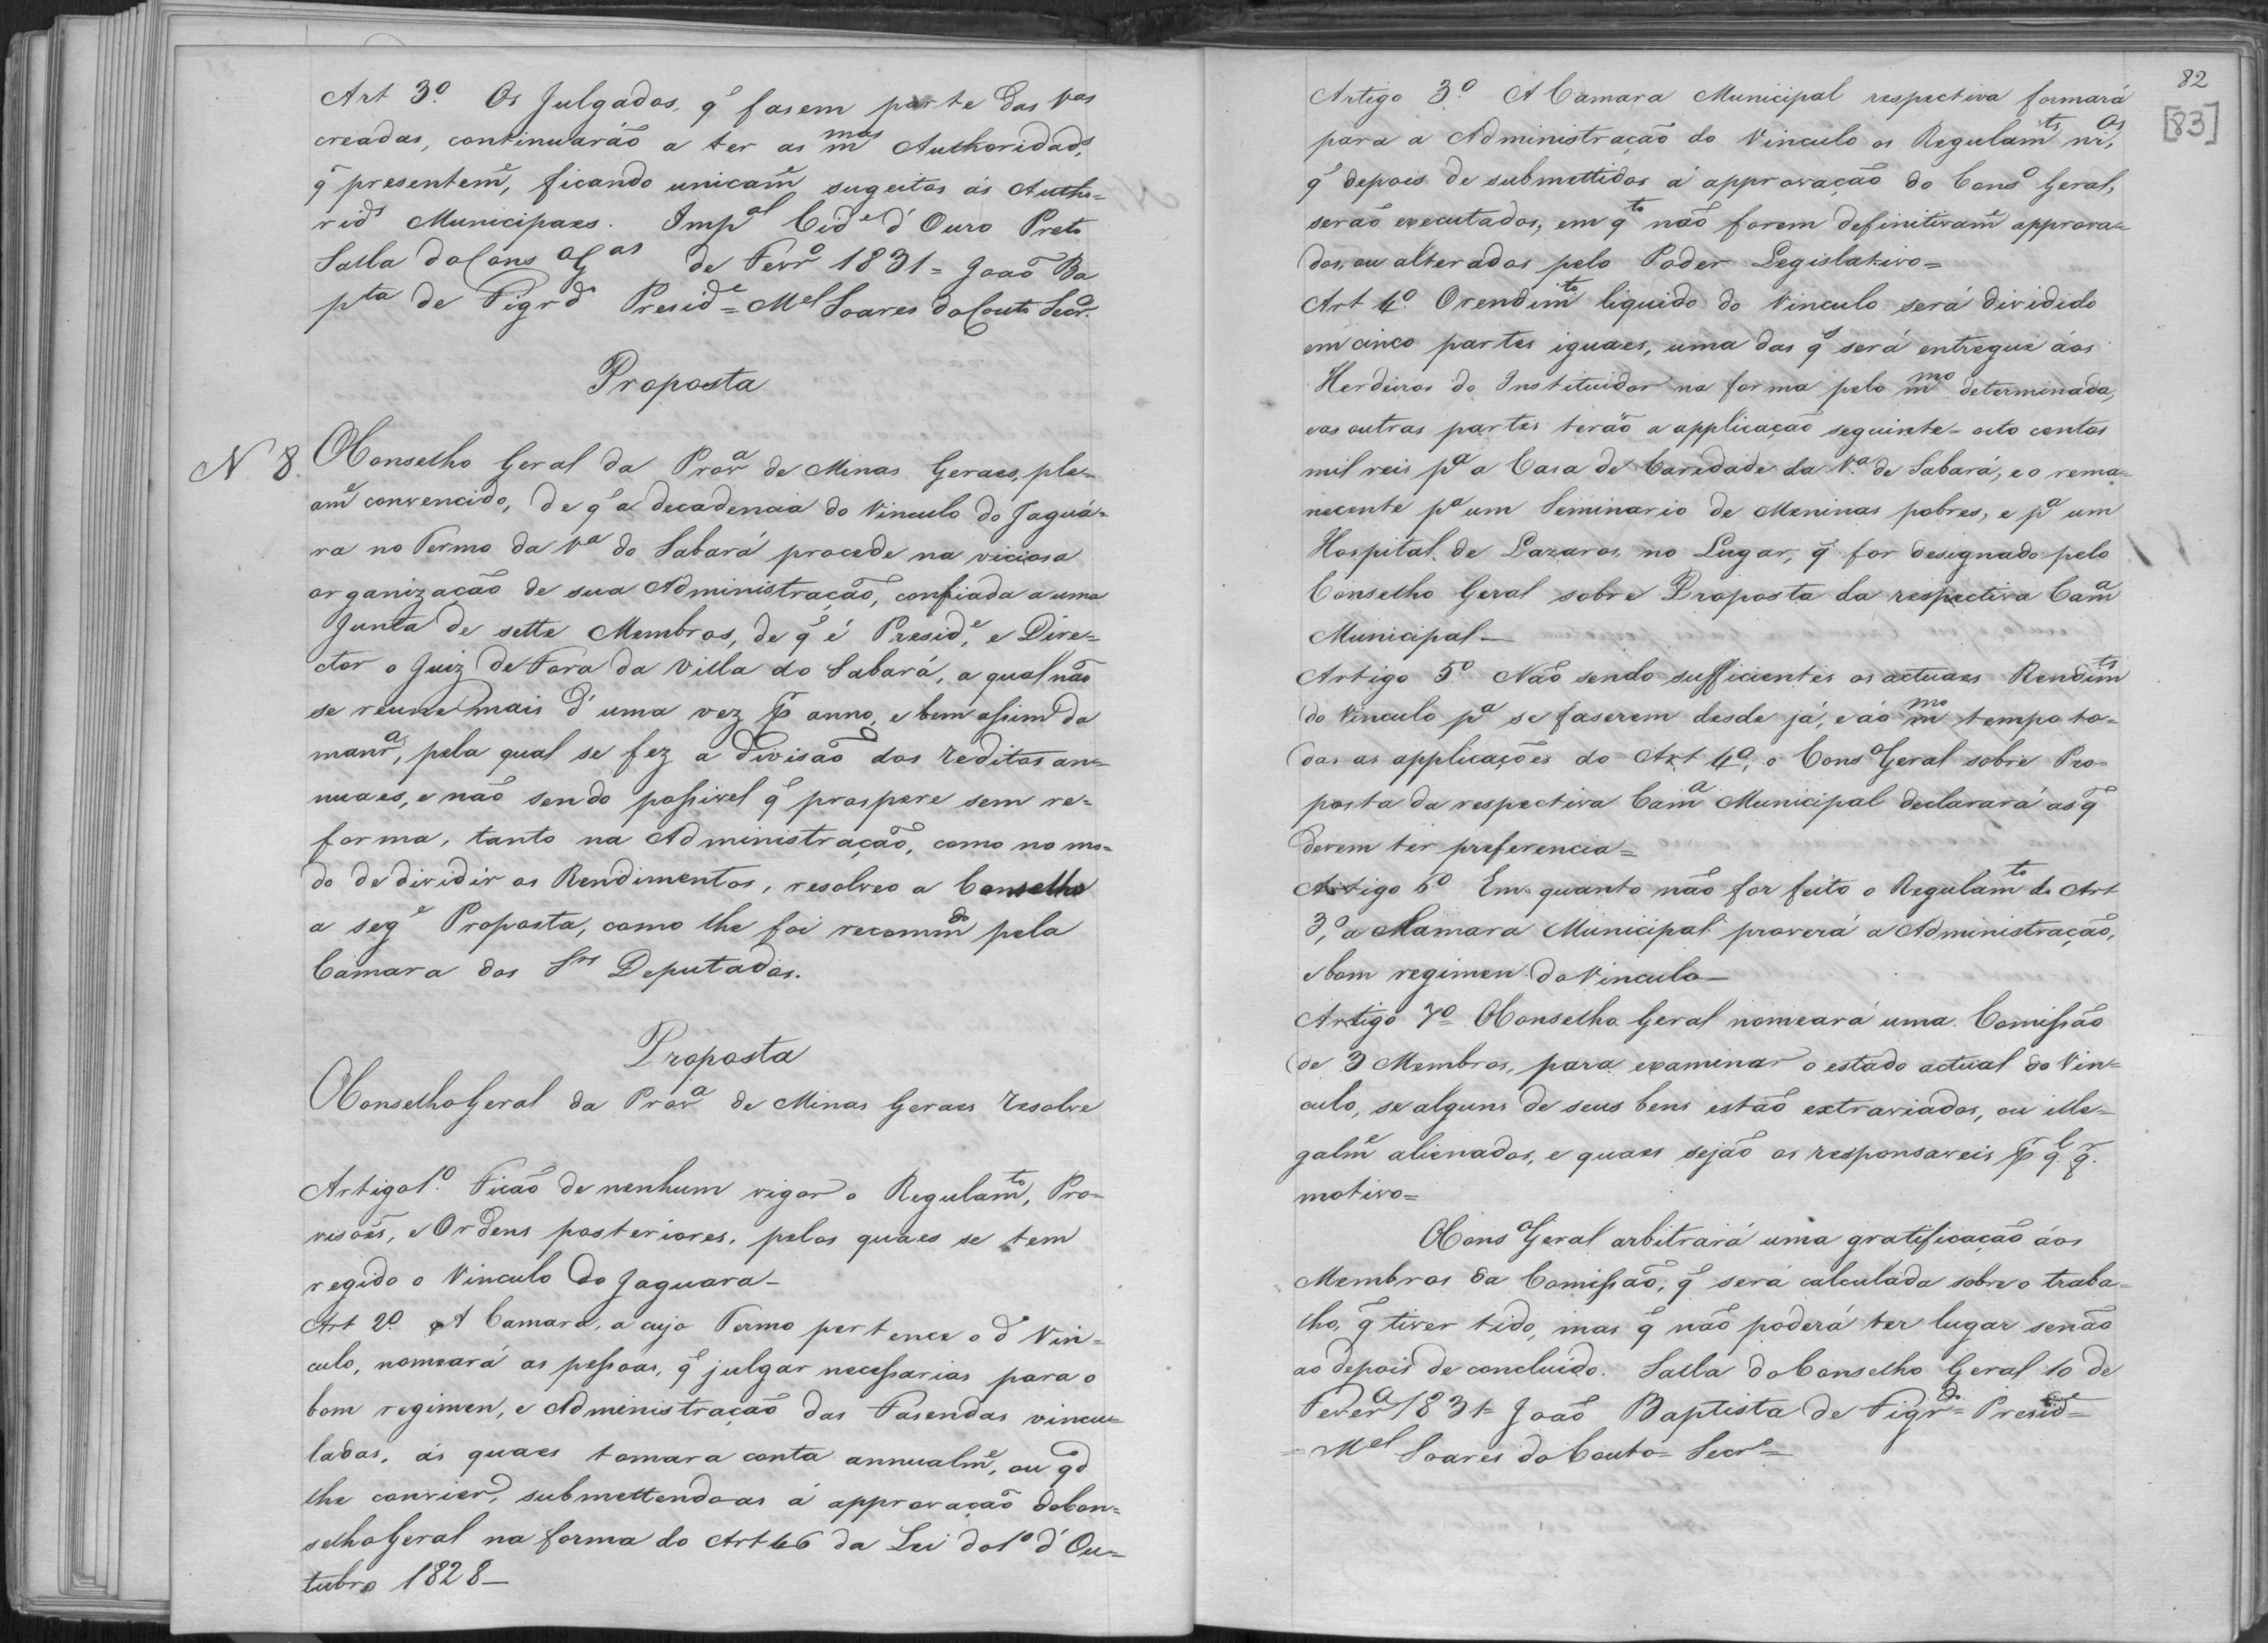 Art 3.º Os Julgados, q̃ fasem parte das Vas
creadas, continuarão a ter as mmas Authoridads,
q̃ presentemẽ, ficando unicamẽ sugeitos ás Autho=
rids Municipaes. Impal Cide d'Ouro Preto
Salla do Conso Gal de Fevro 1831= João Ba
pta de Figrdo Preside= Mel Soares do Couto Secro.
Proposta
N 8. O Conselho Geral da Prova de Minas Geraes, ple=
ame convencido, de q̃ a decadencia do Vinculo do Jaguá=
ra no Termo da Va do Sabará procede na viciosa
organização de sua Administração, confiada a uma
Junta de sette Membros, de q̃ é Preside, e Dire=
ctor o Juiz de Fora da Villa do Sabará, a qual não
se reune mais d'uma vez p anno, e bem assim da
manra, pela qual se fez a divisão dos reditos an=
nuaes, e não sendo possivel q̃ prospere sem re=
forma, tanto na Administração, como no mo=
do de dividir os Rendimentos, resolveo a Conselho
a sege Proposta, como lhe foi recommdo pela
Camara dos Srs Deputados.
Proposta
O Conselho Geral da Prova de Minas Geraes resolve
Artigo 1.º Ficão de nenhum vigor o Regulamto, Pro=
visões, e Ordens posteriores, pelos quaes se tem
regido o Vinculo do Jaguara_
Art 2.º A Camara, a cujo Termo pertence o do Vin=
culo, nomeará as pessoas, q̃ julgar necessarias para o
bom regimen, e Administração das Fasendas vincu=
ladas, ás quaes tomara conta annualme, ou qdo
lhe convier, submettendo-as á approvação do Con=
selho Geral na forma do Art 46 da Lei do 1º d'Ou=
tubro 1828_
82
[83]
Artigo 3.º A Camara Municipal respectiva formará
para a Administração do Vinculo os Regulamts
q̃ depois de submettidos á approvação do Conso Geral,
serão executados, em qto não forem definitivame approva=
dos, ou alterados pelo Poder Legislativo=
Art 4.º O rendimto liquido do Vinculo será dividido
em cinco partes iguaes, uma das q̃ será entregue áos
Herdeiros do Instituidor na forma pelo mmo determinada,
e as outras partes terão a applicação seguinte= oito contos
mil reis pa a Casa de Caridade da Va de Sabará, e o rema=
necente pa um Seminario de Meninas pobres, e pa um
Hospital de Lazaros, no Lugar, q̃ for designado pelo
Conselho Geral sobre Proposta da respectiva Cama
Municipal_
Artigo 5.º Não sendo sufficientes os actuaes Rendimts
do Vinculo pa se faserem desde já, e áo mmo tempo to=
das as applicações do Art 4º, o Conso Geral sobre Pro=
posta da respectiva Cama Municipal declarará as q̃
devem ter preferencia=
Artigo 6º Em quanto não for feito o Regulamto do Art
3º, a Camara Municipal proverá a Administração,
e bom regimen do Vinculo_
Artigo 7º O Conselho Geral nomeará uma Comissão
de 3 Membros, para examinar o estado actual do Vin=
culo, se alguns de seus bens estão extraviados, ou ille=
galme alienados, e quaes sejão os responsaveis p ql qr
motivo=
O Conso Geral arbitrará uma gratificação áos
Membros da Comissão, q̃ será calculada sobre o traba=
lho, q̃ tiver tido, mas q̃ não poderá ter lugar senão
ao depois de concluido. Salla do Conselho Geral 10 de
Fevero 1831= João Baptista de Figrdo= Preside=
= Mel Soares do Couto= Secro=